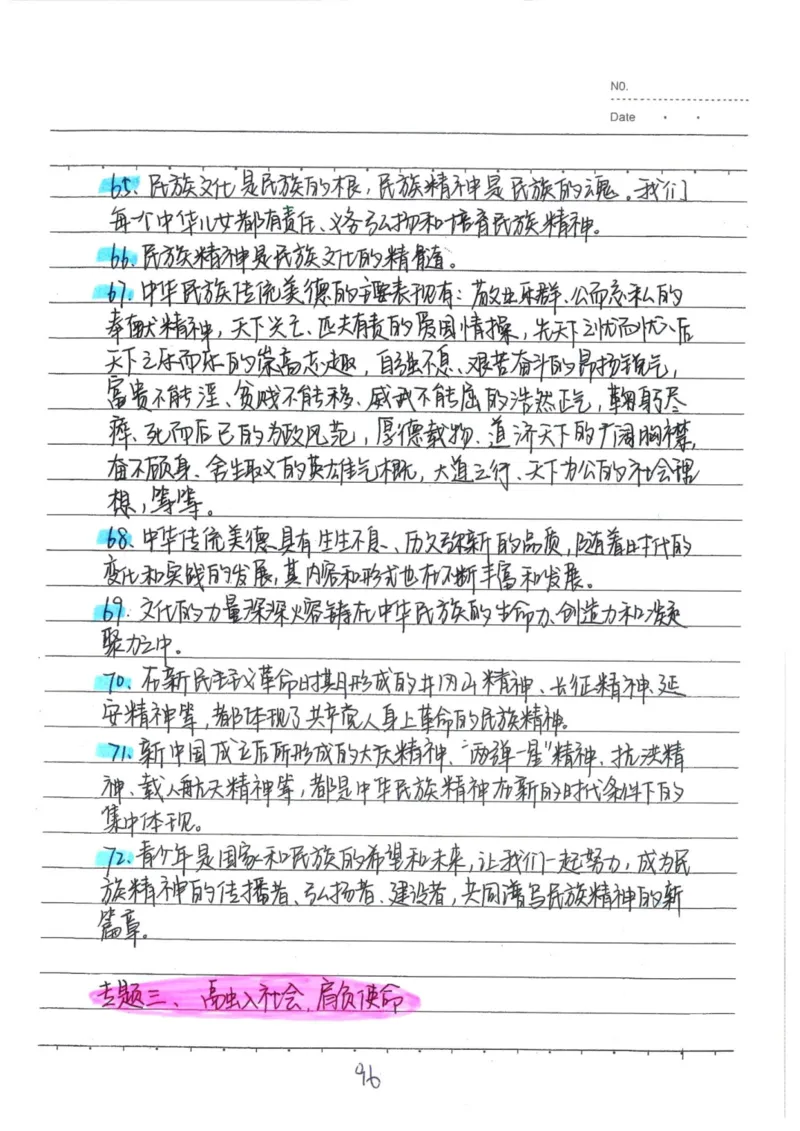 NO.
Date
65、民族文化是民族的根，民族精神是民族的魂。我们
每个中华儿女都有责任、义务弘扬和培育民族精神。
66、民族精神是民族文化的精髓。
67、中华民族传统美德的主要表现有：敬业乐群、公而忘私的
奉献精神，天下兴亡、匹夫有责的爱国情操，先天下之忧而忧、后
天下之乐而乐的崇高志趣，自强不息、艰苦奋斗的昂扬锐气，
富贵不能淫、贫贱不能移、威武不能屈的浩然正气，鞠躬尽
瘁、死而后已的为政风范，厚德载物、道济天下的广阔胸襟，
奋不顾身、舍生取义的英雄气概，大道之行、天下为公的社会理
想，等等。
68、中华传统美德具有生生不息、历久弥新的品质，随着时代的
变化和实践的发展，其内容和形式也在不断丰富和发展。
69、文化的力量深深熔铸在中华民族的生命力、创造力和凝
聚力之中。
70、在新民主主义革命时期形成的井冈山精神、长征精神、延
安精神等，都体现了共产党人身上革命的民族精神。
71、新中国成立后所形成的大庆精神、“两弹一星”精神、抗洪精
神、载人航天精神等，都是中华民族精神在新的时代条件下的
集中体现。
72、青少年是国家和民族的希望和未来，让我们一起努力，成为民
族精神的传播者、弘扬者、建设者，共同谱写民族精神的新
篇章。
专题三、融入社会，肩负使命
96